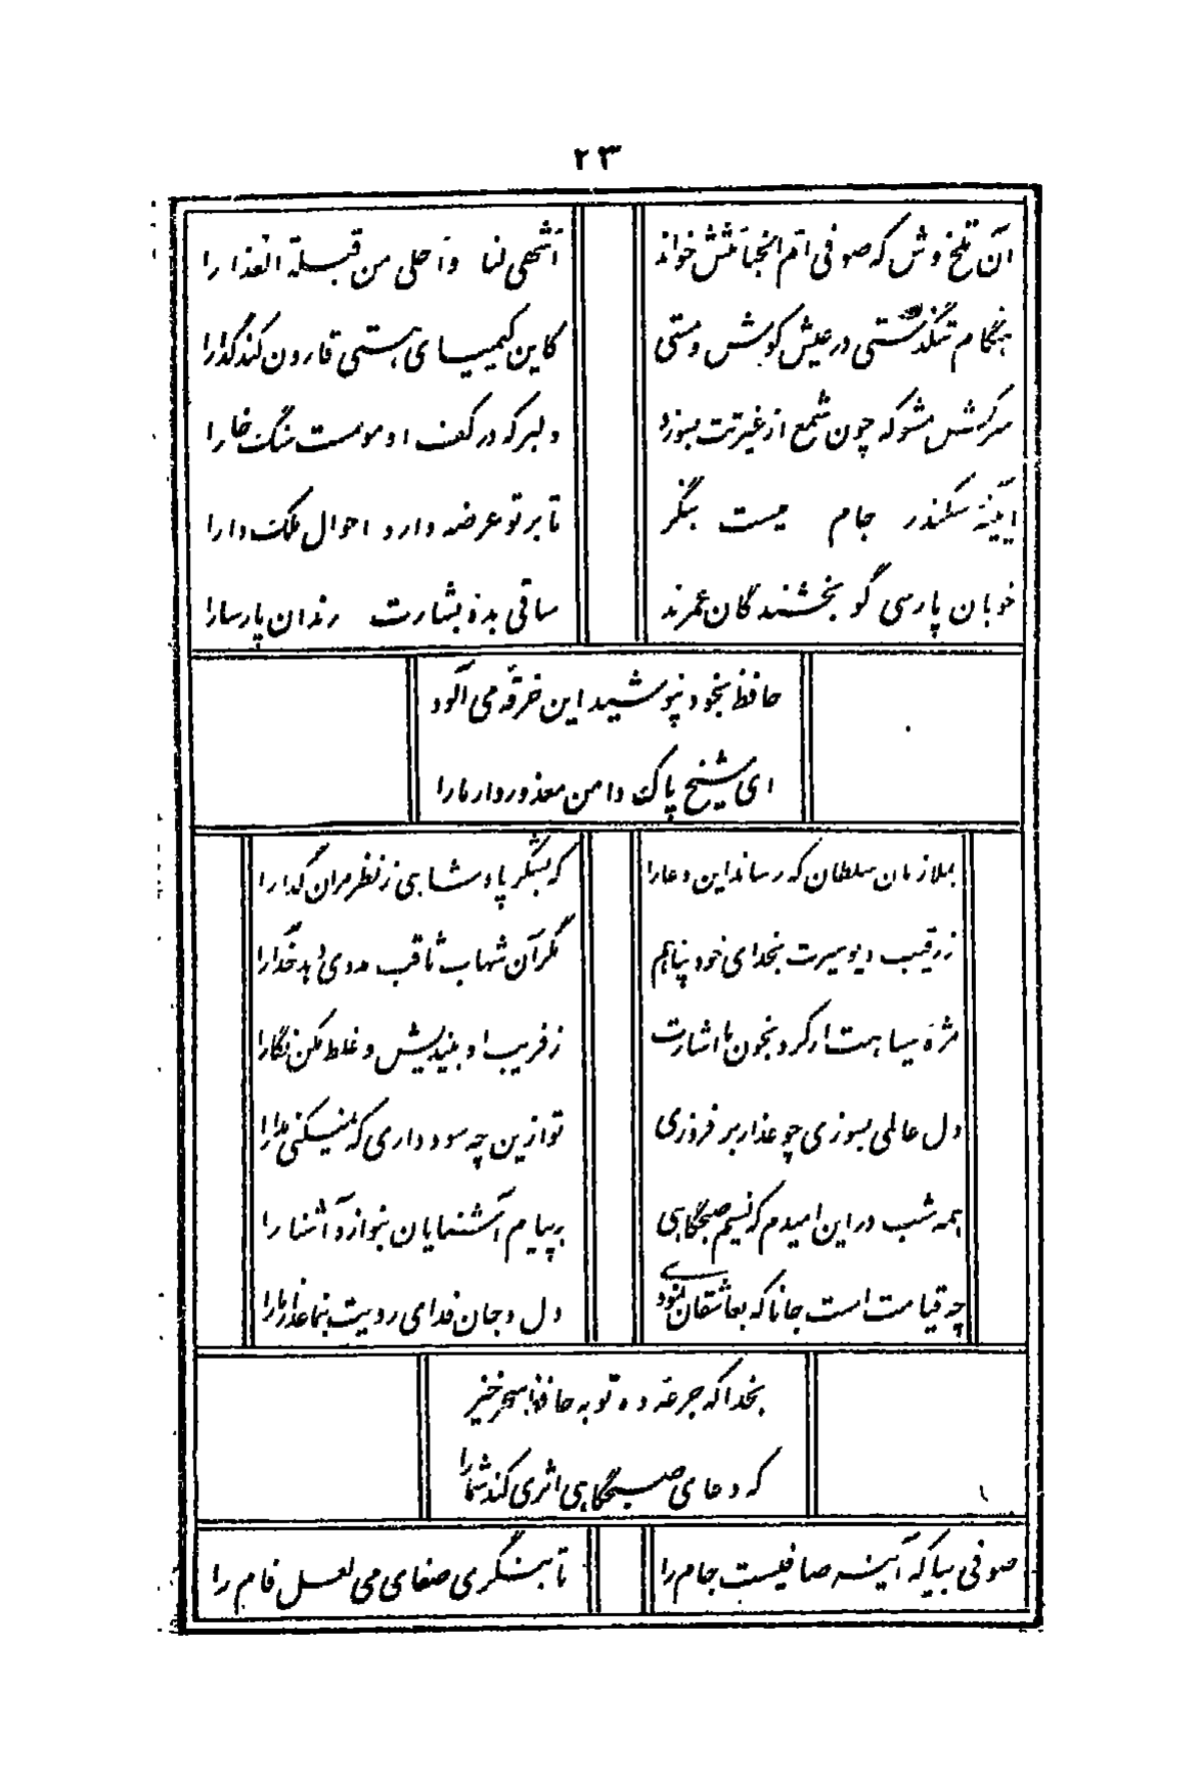 ۲۳
آن تلخ وش که صوفی ام الخبائثش خواند
اشهی لنا واحلی من قبلة العذارا
هنگام تنگدستی در عیش کوش ومستی
کاین کیمیای هستی قارون کند گدارا
سرکش مشو که چون شمع از غیرتت بسوزد
دلبر که در کف او مومست سنگ خارا
آیینه سکندر جام میست بنگر
تا بر تو عرضه دارد احوال ملک دارا
خوبان پارسی گو بخشندگان عمرند
ساقی بده بشارت رندان پارسا را
حافظ بخود نپوشید این خرقه می آلود
ای شیخ پاک دامن معذور دار ما را
بملازمان سلطان که رساند این دعا را
که بشکر پادشاهی ز نظر مران گدا را
ز رقیب دیو سیرت بخدای خود پناهم
مگر آن شهاب ثاقب مددی دهد خدا را
مژهٔ سیاهت ار کرد بخون ما اشارت
ز فریب او بیندیش و غلط مکن نگارا
دل عالمی بسوزی چو عذار بر فروزی
تو ازین چه سود داری که نمیکنی مدارا
همه شب در این امیدم که نسیم صبحگاهی
به پیام آشنایان بنوازد آشنا را
چه قیامت است جانا که بعاشقان نمودی
دل و جان فدای رویت بنما عذار ما را
بخدا که جرعه ده تو به حافظ سحرخیز
که دعای صبحگاهی اثری کند شما را
صوفی بیا که آینه صافیست جام را
تا بنگری صفای می لعل فام را